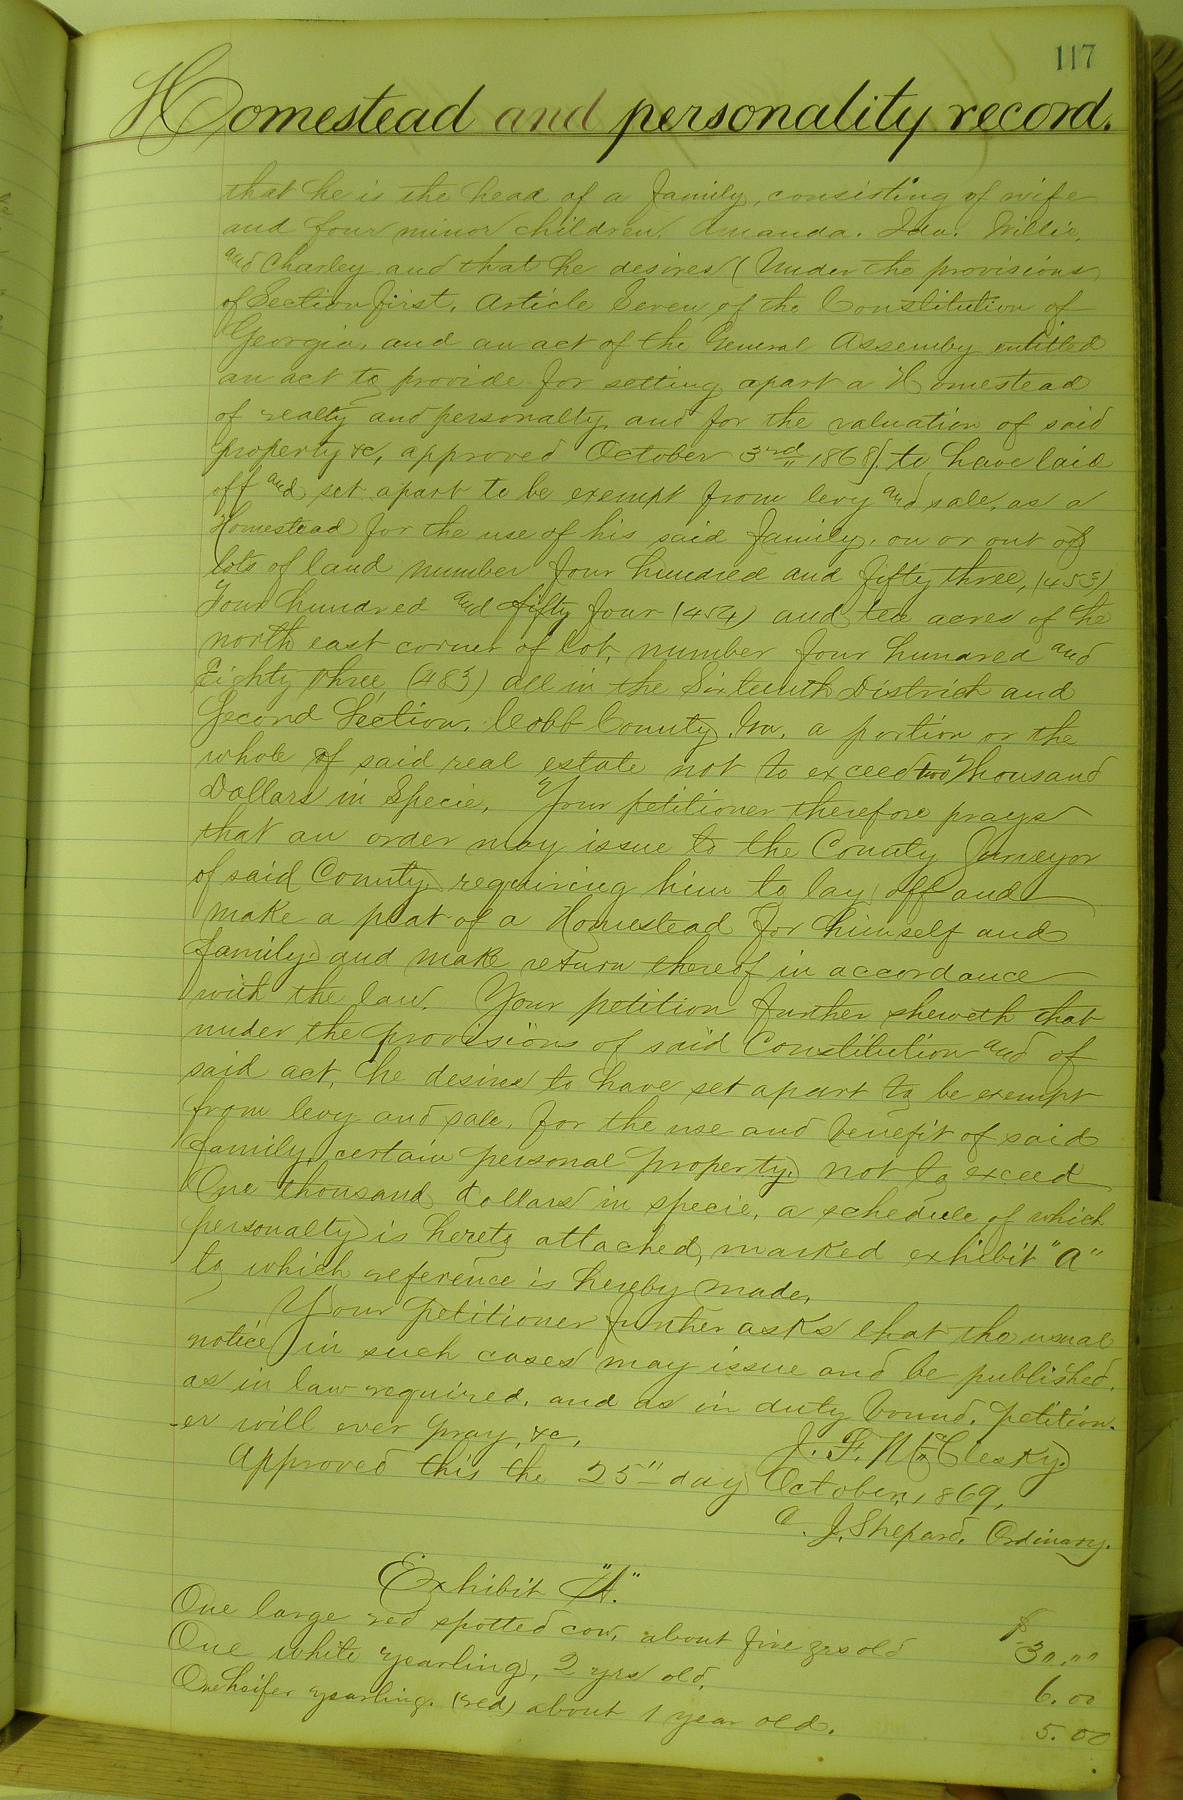 117
Homestead and personality record.
that he is the head of a family, consisting of wife
and four minor children, Amanda. Ida. Willie,
and Charley and that he desires (under the provisions
of Section first, Article Seven of the Constitution of
Georgia, and an act of the General Assemby entitled
an act to provide for setting apart a Homestead
of realty and personalty, and for the valuation of said
property &c, approved October 3rd, 1868) to have laid
off and set apart to be exempt from levy and sale, as a
Homestead for the use of his said family, on or out of
lots of land number four hundred and fifty three, (453)
Four hundred and fifty four (454) and ten acres of the
north east corner of lot, number four hundred and
Eighty three, (483) all in the Sixteenth District and
Second Section, Cobb County, Ga. a portion or the
whole of said real estate not to exceed two Thousand
Dollars in Specie, Your petitioner therefore prays
that an order may issue to the County Surveyor
of said County, requiring him to lay off and
make a plat of a Homestead for himself and
family, and make return thereof in accordance
with the law. Your petition further sheweth that
under the provisions of said Constitution and of
said act, he desires to have set apart to be exempt
from levy and sale, for the use and benefit of said
family, certain personal property, not to exceed
One thousand dollars in specie, a schedule of which
personalty is hereto attached, marked exhibit "A"
to which reference is hereby made,
Your petitioner further asks that the usual
notice in such cases may issue and be published,
as in law required, and as in duty bound, petition-
-er will ever pray, &c,
J. F. McClesky.
Approved this the 25" day October, 1869,
A. J. Shepard, Ordinary.
Exhibit "A."
One large red spotted cow, about five yrs old $ 30.00
One white yearling, 2 yrs old, 6.00
One heifer yearling. (red) about 1 year old. 5.00